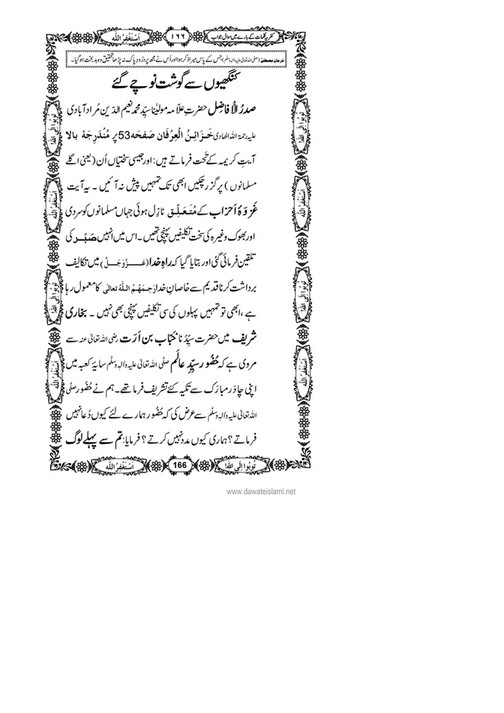 کفریہ کلمات کے بارے میں سوال جواب ١٦٦ اَسْتَغْفِرُ اللّٰه
فرمانِ مصطفےٰ (صلی اللہ تعالیٰ علیہ والہ وسلم) جس کے پاس میرا ذکر ہوا اور اُس نے مجھ پر دُرُودِ پاک نہ پڑھا تحقیق وہ بدبخت ہوگیا۔
کنگھیوں سے گوشت نوچے گئے
صدرُ الْاَ فاضِل حضرتِ علّامہ مولیٰنا سیِّد محمد نعیم الدّین مُراد آبادی
علیہ رحمۃ اللہ الھادی خَزائِنُ الْعِرْفان صَفْحَہ53 پر مُنْدَرِجَۂ بالا
آیتِ کریمہ کے تَحت فرماتے ہیں: اور جیسی سختیاں اُن (یعنی اگلے
مسلمانوں) پر گزر چکیں ابھی تک تمہیں پیش نہ آئیں۔ یہ آیت
غَزوَۂ اَحْزاب کے مُتَعَلِّق نازِل ہوئی جہاں مسلمانوں کو سردی
اور بھوک وغیرہ کی سخت تکلیفیں پہنچی تھیں۔ اس میں انہیں صَبْر کی
تلقین فرمائی گئی اور بتایا گیا کہ راہِ خدا (عَزَّوَجَلَّ) میں تکالیف
برداشت کرنا قدیم سے خاصانِ خدا رَحِمَہُمُ اللّٰہُ تعالٰی کا معمول رہا
ہے، ابھی تو تمہیں پہلوں کی سی تکلیفیں پہنچی بھی نہیں۔ بخاری
شریف میں حضرت سیِّدُنا خبّاب بن اَرَت رضی اللہ تعالیٰ عنہ سے
مروی ہے کہ حُضُور سیِّدِ عالَم صلی اللہ تعالیٰ علیہ والہ وسلم سایۂ کعبہ میں
اپنی چادَرِ مبارَک سے تکیہ کئے تشریف فرما تھے۔ ہم نے حُضُور صلی
اللہ تعالیٰ علیہ والہ وسلم سے عرض کی کہ حُضُور ہمارے لئے کیوں دُعا نہیں
فرماتے؟ ہماری کیوں مدد نہیں کرتے؟ فرمایا: تم سے پہلے لوگ
اَسْتَغْفِرُ اللّٰه 166 تُوبُوا اِلَی اللّٰه
تُوبُوا اِلَی اللّٰه
اَسْتَغْفِرُ اللّٰه
تُوبُوا اِلَی اللّٰه
اَسْتَغْفِرُ اللّٰه
www.dawateislami.net